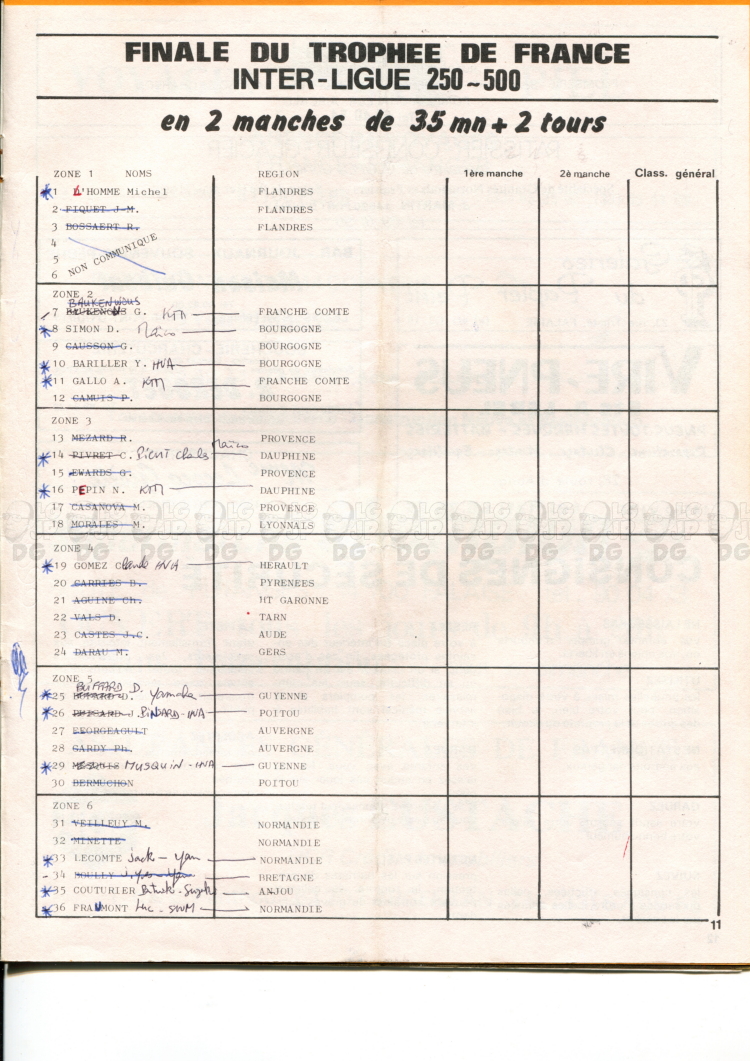 FINALE DU TROPHEE DE FRANCE
INTER-LIGUE 250~500
en 2 manches de 35 mn + 2 tours
ZONE 1 NOMS REGION 1ère manche 2è manche Class. général
1 L'HOMME Michel FLANDRES
2 FIQUET J-M. FLANDRES
3 BOSSAERT R. FLANDRES
4
5 NON COMMUNIQUE
6
ZONE 2
BAUKENWOUS
7 G. KTM FRANCHE COMTE
8 SIMON D. Maico BOURGOGNE
9 CAUSSON G. BOURGOGNE
10 BARILLER Y. HVA BOURGOGNE
11 GALLO A. KTM FRANCHE COMTE
12 CAMUIS P. BOURGOGNE
ZONE 3
13 MEZARD R. PROVENCE
Maico
14 PIVRET C. DAUPHINE
15 EWARDS G. PROVENCE
16 PEPIN N. KTM DAUPHINE
17 CASANOVA M. PROVENCE
18 MORALES M. LYONNAIS
ZONE 4
19 GOMEZ Claude HVA HERAULT
20 CARRIES B. PYRENEES
21 AGUINE Ch. HT GARONNE
22 VALS D. TARN
23 CASTES J.C. AUDE
24 DARAU M. GERS
ZONE 5
BUFFARD D.
25 D. Yamaha GUYENNE
26 BINBARD-HVA POITOU
27 FEORGEAGULT AUVERGNE
28 GARDY Ph. AUVERGNE
29 MUSQUIN-HVA GUYENNE
30 BERMUCHON POITOU
ZONE 6
31 VEILLEUY M. NORMANDIE
32 MINETTE NORMANDIE
33 LECOMTE Jack - Yam NORMANDIE
34 MOULLY J.Yves - Yam BRETAGNE
35 COUTURIER Patrick - Suzuki ANJOU
36 FRAUMONT Luc - SWM NORMANDIE
11
LG JP DG